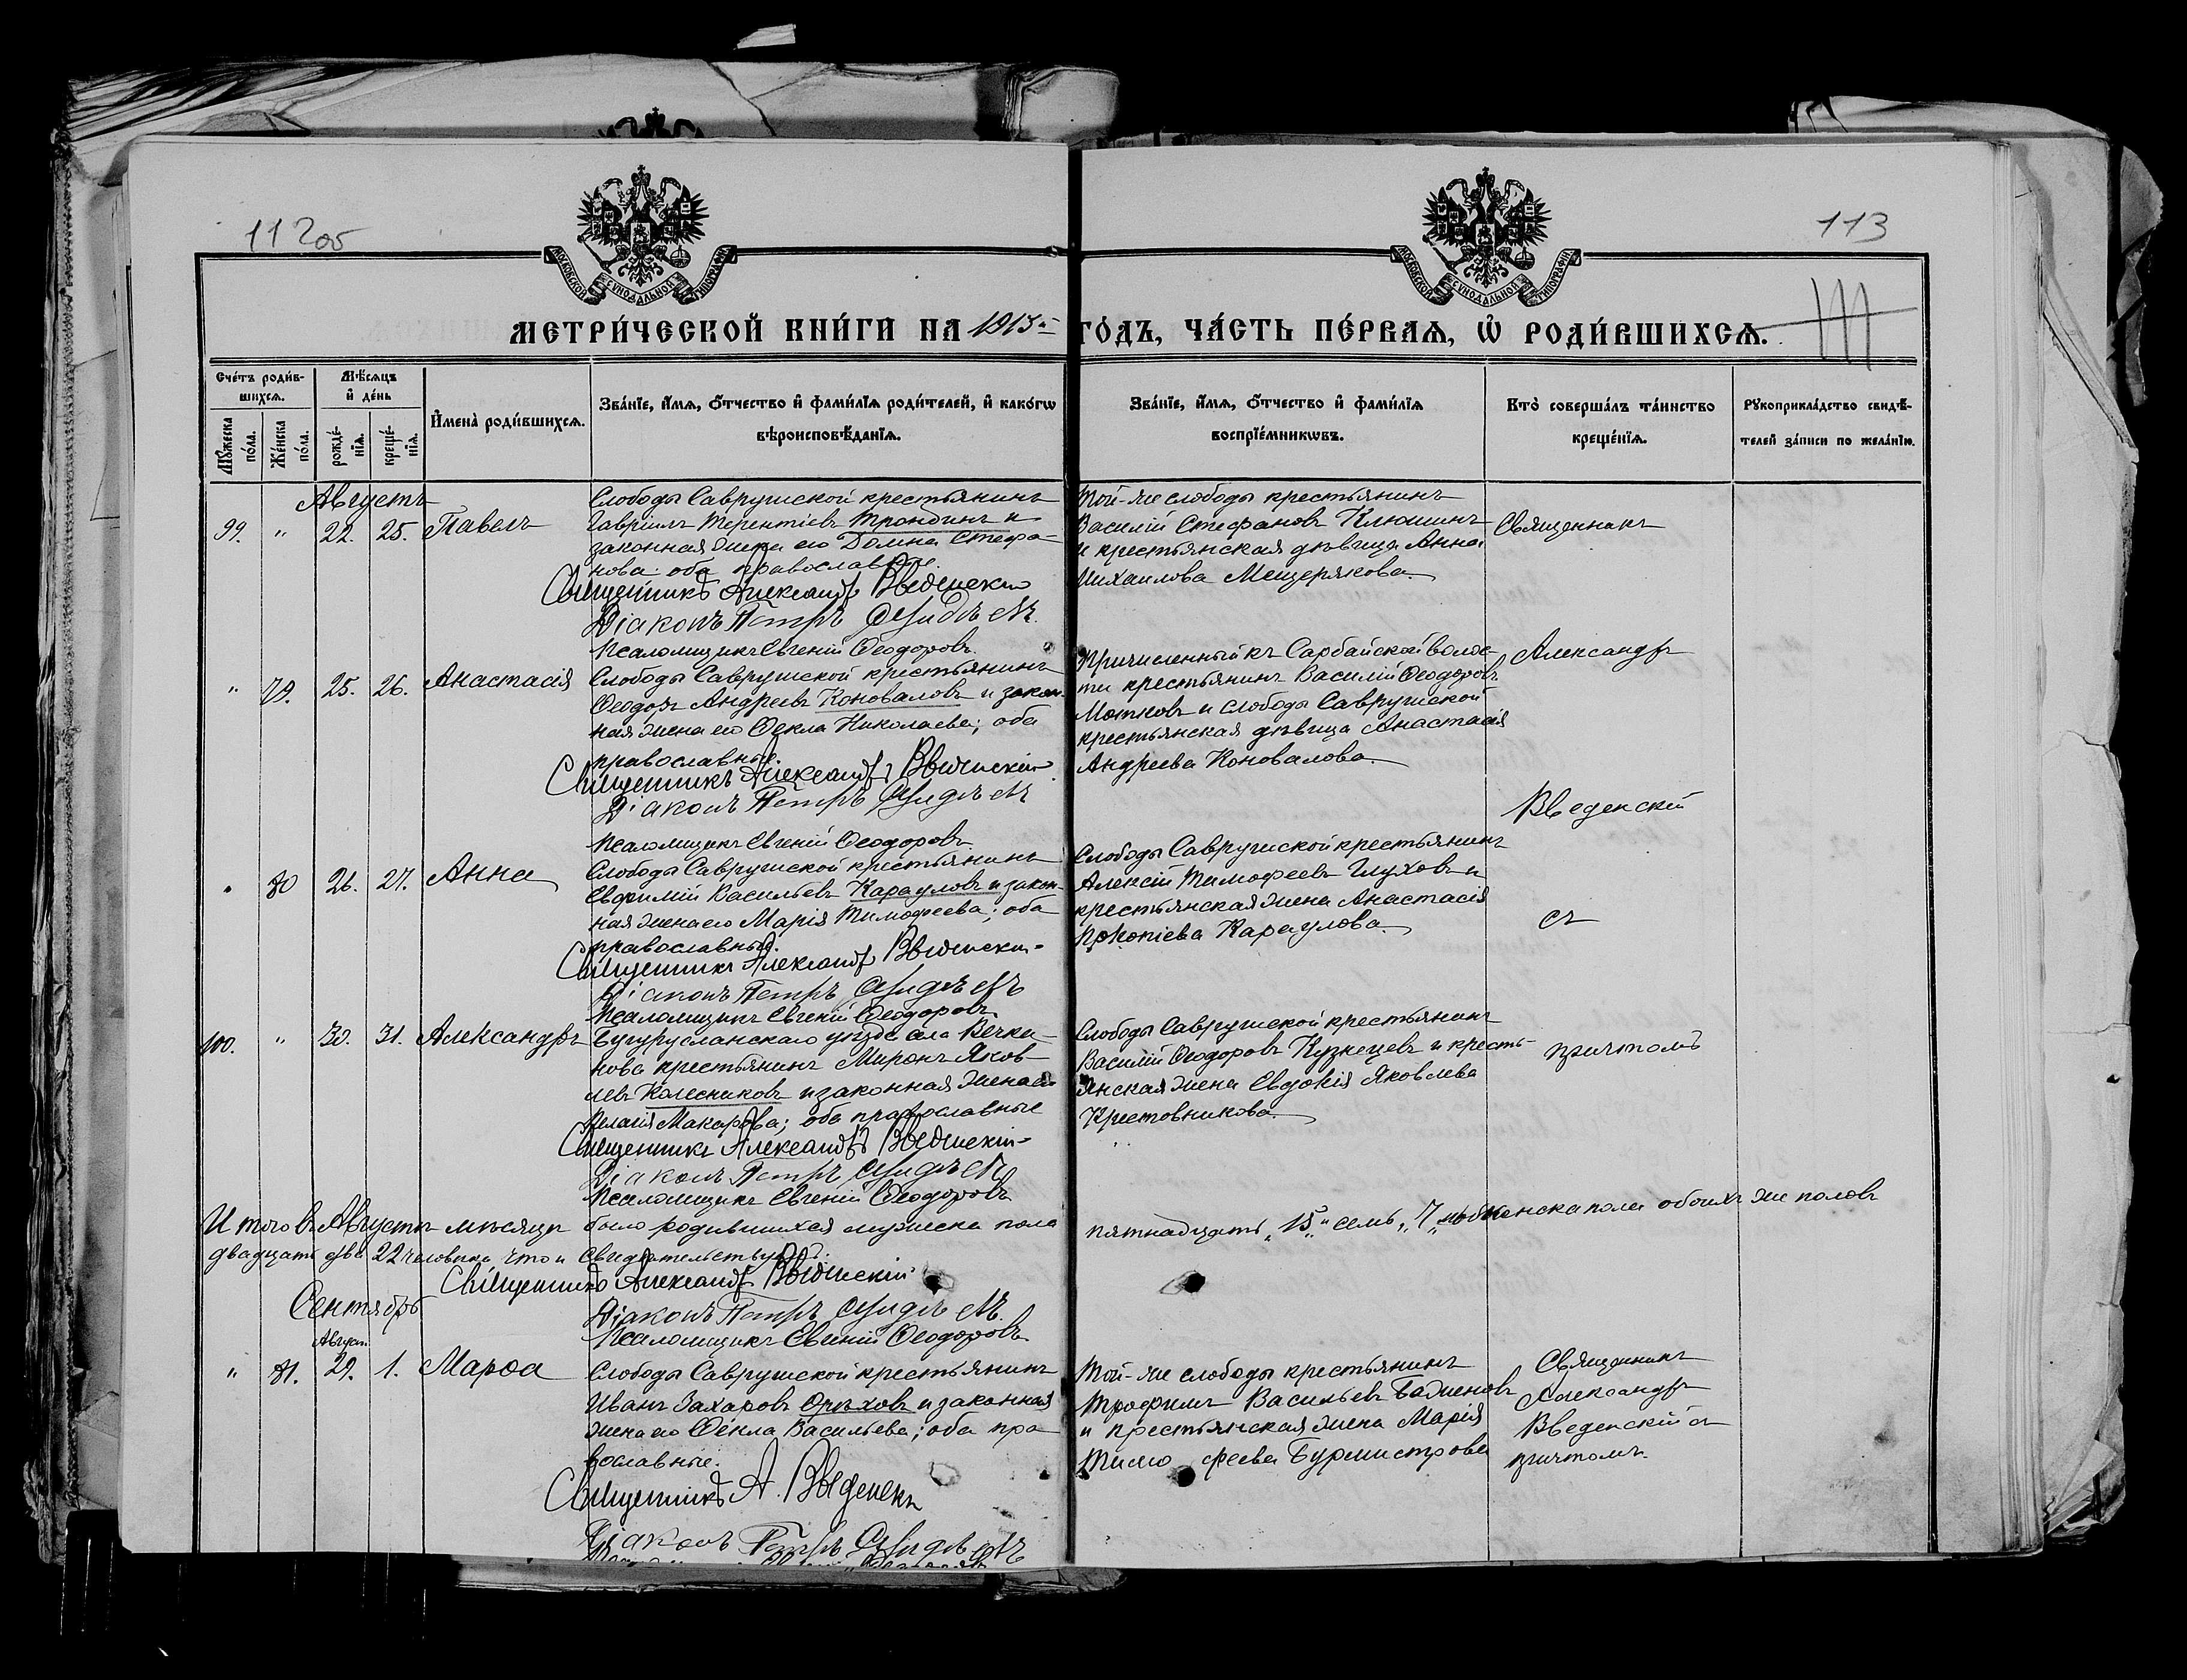 112об
113
МОСКОВСКОЙ СУНОДАЛЬНОЙ ТИПОГРАФІИ
МОСКОВСКОЙ СУНОДАЛЬНОЙ ТИПОГРАФІИ
МЕТРИ́ЧЕСКОЙ КНИ́ГИ НА 1915 й ГО́ДЪ, ЧА́СТЬ ПЕ́РВАѦ, Ѡ҆ РОДИ́ВШИХСѦ.
Сче́тъ роди́в-
шихсѧ.
Мꙋ́жеска по́ла.
Же́нска по́ла.
Мѣ́сѧцъ
и҆ де́нь
рожде́-
нїѧ.
креще́-
нїѧ.
И҆мена̀ роди́вшихсѧ.
Зва́нїе, и҆́мѧ, ѻ҆́тчество и҆ фами́лїѧ роди́телей, и҆ како́гѡ
вѣроисповѣ́данїѧ.
Зва́нїе, и҆́мѧ, ѻ҆́тчество и҆ фами́лїѧ
воспрїе́мникѡвъ.
Кто̀ соверша́лъ та́инство
креще́нїѧ.
Рꙋкоприкла́дство свидѣ́-
телей за́писи по жела́нїю.
Августъ
99. " 22. 25. Павелъ
Слободы Саврушской крестьянинъ
Гавріилъ Терентіевъ Трондинъ и
законная жена его Домна Стефа-
нова: оба православные.
Священникъ Александръ Введенскій
Діаконъ Петръ
Псаломщикъ Евгеній Ѳеодоровъ
Той-же слободы крестьянинъ
Василій Стефановъ Клюшинъ
и крестьянская дѣвица Анна
Михаилова Мещерякова
Священникъ
" 79. 25. 26. Анастасія
Слободы Саврушской крестьянинъ
Ѳеодоръ Андреевъ Коноваловъ и закон-
ная жена его Ѳекла Николаева; оба
православные.
Священникъ Александръ Введенскій
Діаконъ Петръ
Псаломщикъ Евгеній Ѳеодоровъ
Причисленный къ Сарбайской волос-
ти крестьянинъ Василій Ѳеодоровъ
Мотковъ и слободы Саврушской
крестьянская дѣвица Анастасія
Андреева Коновалова
Александръ
Введенскій
" 80 26. 27. Анна
Слободы Саврушской крестьянинъ
Евфимій Васильевъ Карауловъ и закон-
ная жена его Марія Тимофеева; оба
православные.
Священникъ Александръ Введенскій
Діаконъ Петръ
Псаломщикъ Евгеній Ѳеодоровъ
Слободы Саврушской крестьянинъ
Алексій Тимофеевъ Глуховъ и
крестьянская жена Анастасія
Прокопіева Караулова
съ
100. " 30. 31. Александръ
Бугурусланскаго уѣзда села Вечка-
нова крестьянинъ Миронъ Яков-
левъ Колесниковъ и законная жена его
Пелагія Макарова; оба православные
Священникъ Александръ Введенскій
Діаконъ Петръ
Псаломщикъ Евгеній Ѳеодоровъ
Слободы Саврушской крестьянинъ
Василій Ѳеодоровъ Кузнецевъ и кресть-
янская жена Евдокія Яковлева
Крестовникова
причтомъ
Итого въ Августѣ мѣсяцѣ было родившихся мужеска пола пятнадцать „15" семь „7" женска пола обоихъ же половъ
двадцать два 22 человека, что и свидетельствуютъ:
Священникъ Александръ Введенскій
Діаконъ Петръ
Псаломщикъ Евгеній Ѳеодоровъ
Сентябрь
Август.
" 81. 29. 1. Марѳа
Слободы Саврушской крестьянинъ
Иванъ Захаровъ Орѣховъ и законная
жена его Ѳекла Васильева; оба пра-
вославные.
Священникъ А. Введенскій
Діаконъ Петръ
Той-же слободы крестьянинъ
Трофимъ Васильевъ Баженовъ
и крестьянская жена Марія
Тимофеева Бурмистрова
Священникъ
Александръ
Введенскій съ
причтомъ.